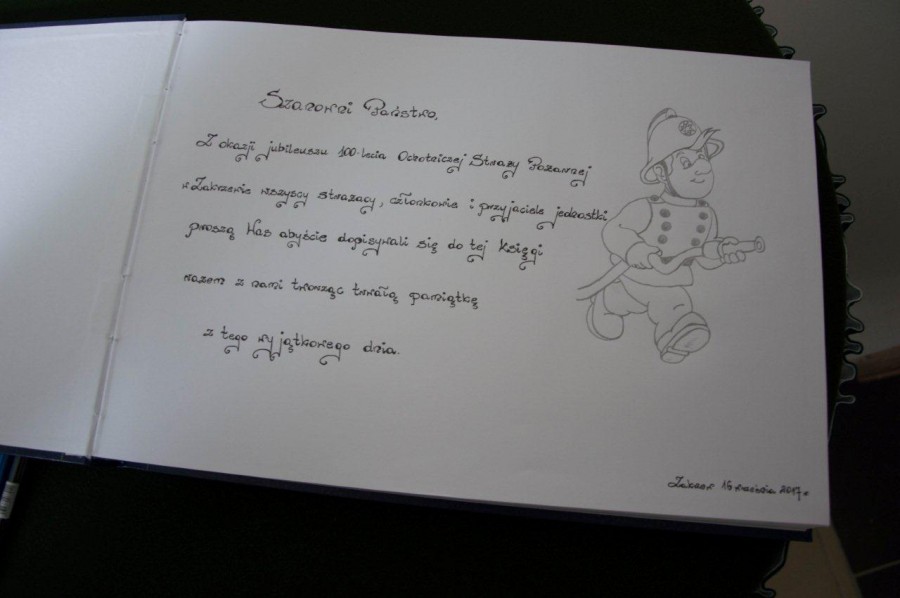 Szanowni Państwo,
Z okazji jubileuszu 100-lecia Ochotniczej Straży Pożarnej
w Zakrzewie wszyscy strażacy, członkowie i przyjaciele jednostki
proszą Was abyście dopisywali się do tej księgi
razem z nami tworząc trwałą pamiątkę
z tego wyjątkowego dnia.
2017 r